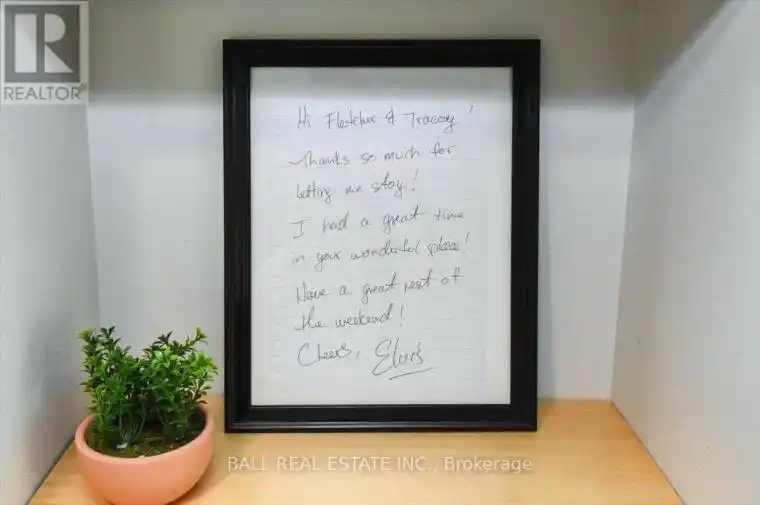 REALTOR®
Hi Fletcher & Tracey!
Thanks so much for
letting me stay!
I had a great time
in your wonderful place!
Have a great rest of
the weekend!
Cheers, Elvis
BALL REAL ESTATE INC., Brokerage